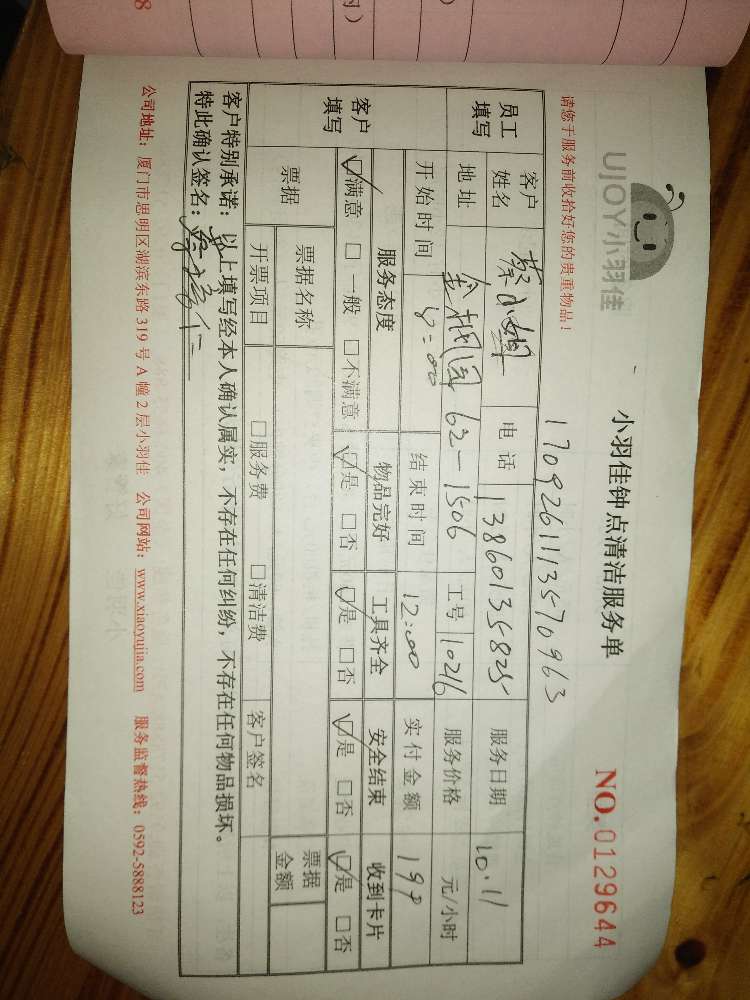 UJOY小羽佳
小羽佳钟点清洁服务单
NO.0129644
请您于服务前收拾好您的贵重物品！
1709261113570963
员工填写 客户姓名 蔡小姐 电话 13860135825 服务日期 10.11
地址 金枫园 62-1506 工号 10216 服务价格 元/小时
开始时间 8:00 结束时间 12:00 实付金额 199
客户填写 服务态度 物品完好 工具齐全 安全结束 收到卡片
☑满意 □一般 □不满意 ☑是 □否 ☑是 □否 ☑是 □否 ☑是 □否
票据 票据名称 票据金额
开票项目 □服务费 □清洁费 客户签名
客户特别承诺：以上填写经本人确认属实，不存在任何纠纷，不存在任何物品损坏。
特此确认签名：
公司地址：厦门市思明区湖滨东路 319 号 A 幢 2 层小羽佳 公司网站：www.xiaoyujia.com 服务监督热线：0592-5888123